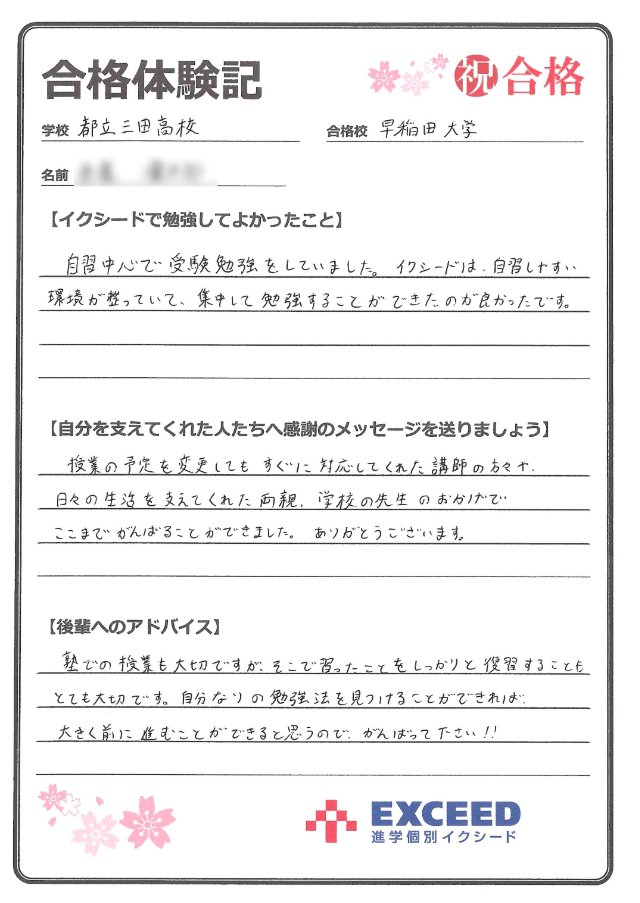 合格体験記
祝 合格
学校 都立三田高校
合格校 早稲田大学
名前
【イクシードで勉強してよかったこと】
自習中心で受験勉強をしていました。イクシードは、自習しやすい
環境が整っていて、集中して勉強することができたのが良かったです。
【自分を支えてくれた人たちへ感謝のメッセージを送りましょう】
授業の予定を変更してもすぐに対応してくれた講師の方々や、
日々の生活を支えてくれた両親、学校の先生のおかげで
ここまでがんばることができました。ありがとうございます。
【後輩へのアドバイス】
塾での授業も大切ですが、そこで習ったことをしっかりと復習することも
とても大切です。自分なりの勉強法を見つけることができれば、
大きく前に進むことができると思うので、がんばって下さい!!
EXCEED
進学個別イクシード